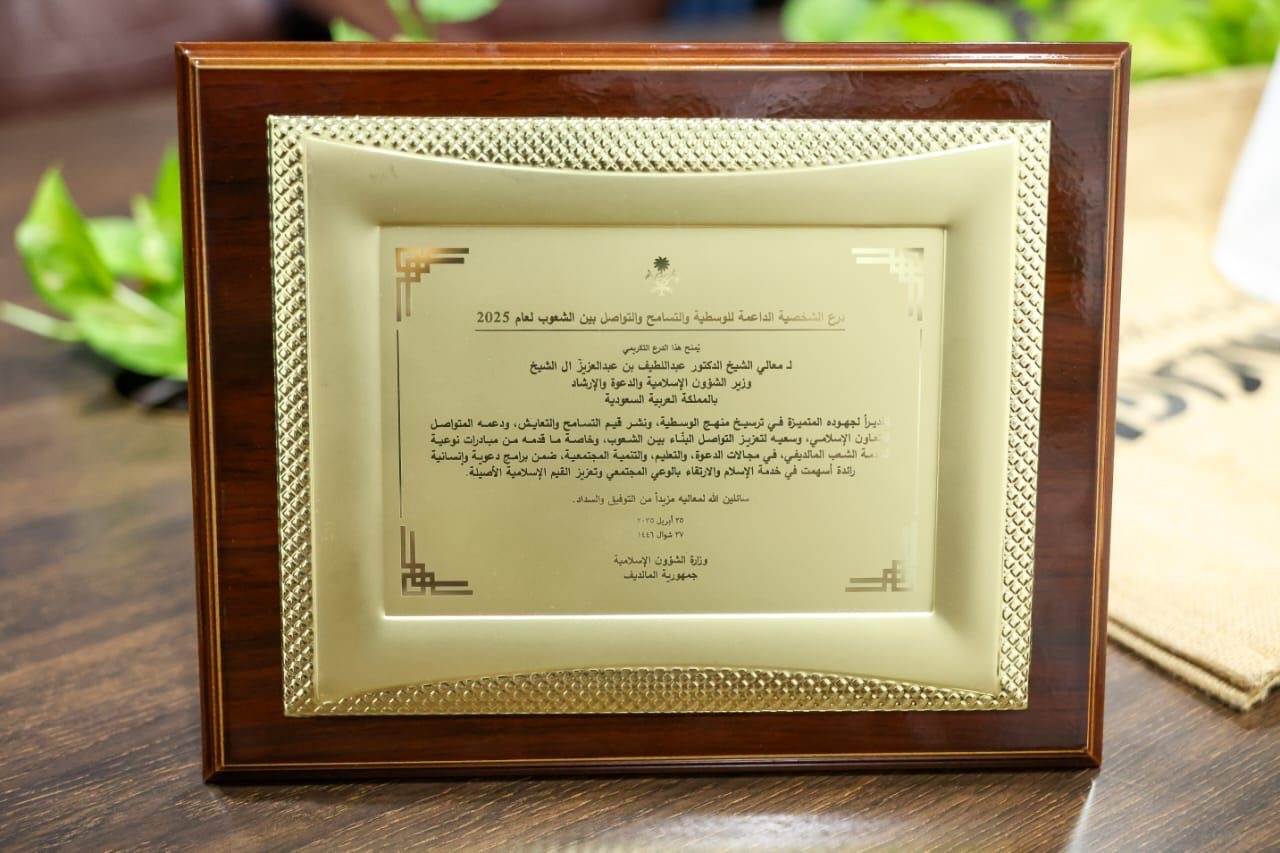 درع الشخصية الداعمة للوسطية والتسامح والتواصل بين الشعوب لعام 2025
يُمنح هذا الدرع التكريمي
لـ معالي الشيخ الدكتور عبداللطيف بن عبدالعزيز آل الشيخ
وزير الشؤون الإسلامية والدعوة والإرشاد
بالمملكة العربية السعودية
لجهوده المتميزة في ترسيخ منهج الوسطية، ونشر قيم التسامح والتعايش، ودعمه المتواصل
الإسلامي، وسعيه لتعزيز التواصل البنّاء بين الشعوب، وخاصة ما قدمه من مبادرات نوعية
الشعب المالديفي، في مجالات الدعوة، والتعليم، والتنمية المجتمعية، ضمن برامج دعوية وإنسانية
رائدة أسهمت في خدمة الإسلام والارتقاء بالوعي المجتمعي وتعزيز القيم الإسلامية الأصيلة.
سائلين الله لمعاليه مزيداً من التوفيق والسداد.
٢٥ أبريل ٢٠٢٥
٢٧ شوال ١٤٤٦
وزارة الشؤون الإسلامية
جمهورية المالديف